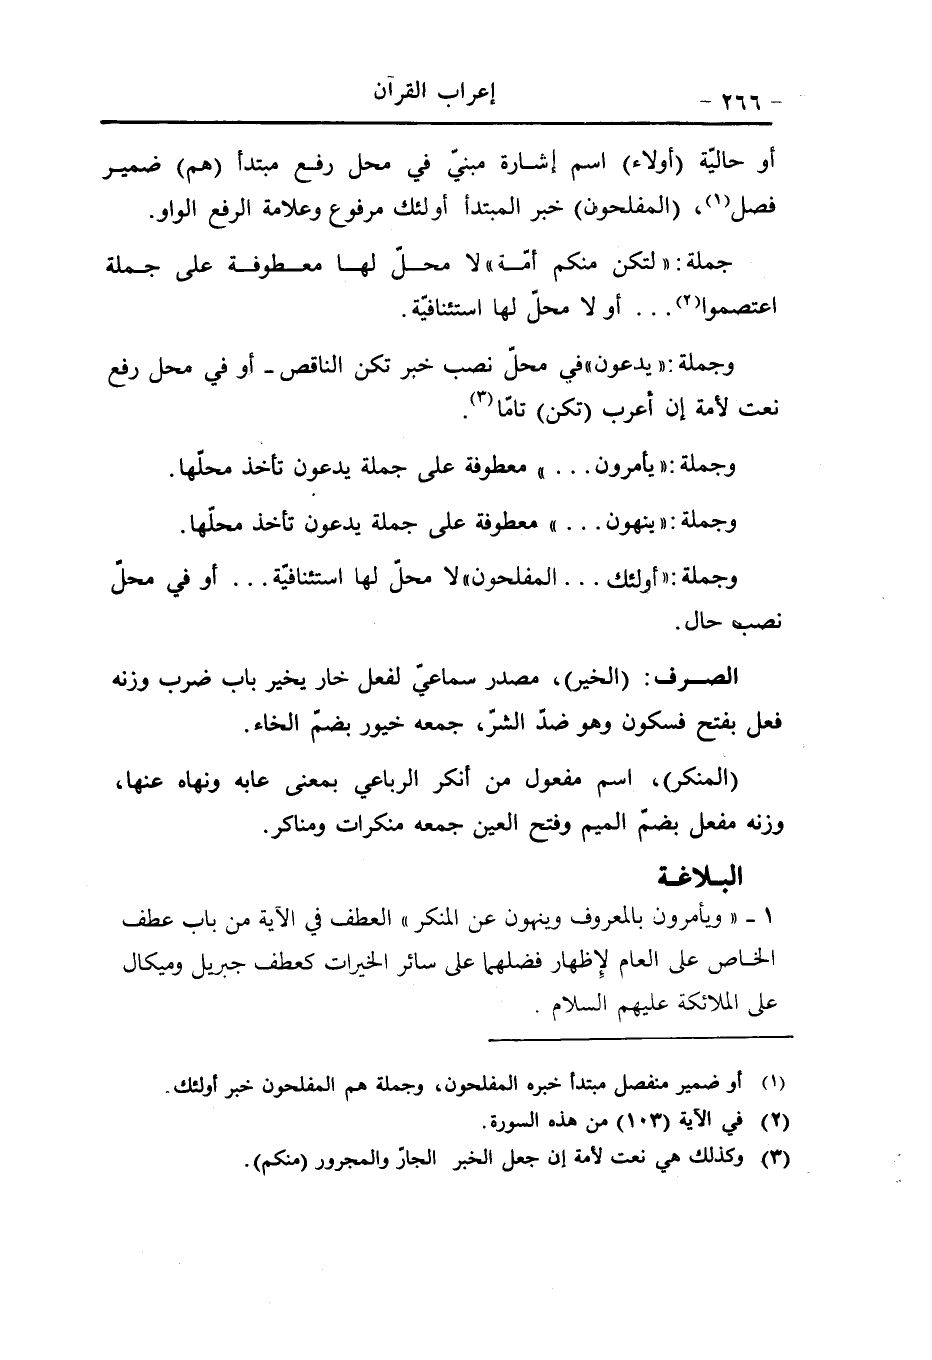 - ٢٦٦ -
إعراب القرآن
أو حاليّة (أولاء) اسم إشارة مبنيّ في محل رفع مبتدأ (هم) ضمير
فصل(١)، (المفلحون) خبر المبتدأ أولئك مرفوع وعلامة الرفع الواو.
جملة: «لتكن منكم أمّة» لا محلّ لها معطوفة على جملة
اعتصموا(٢)... أو لا محلّ لها استئنافيّة.
وجملة: «يدعون» في محلّ نصب خبر تكن الناقص - أو في محل رفع
نعت لأمة إن أعرب (تكن) تامّا(٣).
وجملة: «يأمرون...» معطوفة على جملة يدعون تأخذ محلّها.
وجملة: «ينهون...» معطوفة على جملة يدعون تأخذ محلّها.
وجملة: «أولئك... المفلحون» لا محلّ لها استئنافيّة... أو في محلّ
نصب حال.
الصرف: (الخير)، مصدر سماعيّ لفعل خار يخير باب ضرب وزنه
فعل بفتح فسكون وهو ضدّ الشرّ، جمعه خيور بضمّ الخاء.
(المنكر)، اسم مفعول من أنكر الرباعي بمعنى عابه ونهاه عنها،
وزنه مفعل بضمّ الميم وفتح العين جمعه منكرات ومناكر.
البلاغة
١ - « ويأمرون بالمعروف وينهون عن المنكر » العطف في الآية من باب عطف
الخاص على العام لإظهار فضلهما على سائر الخيرات كعطف جبريل وميكال
على الملائكة عليهم السلام .
(١) أو ضمير منفصل مبتدأ خبره المفلحون، وجملة هم المفلحون خبر أولئك.
(٢) في الآية (١٠٣) من هذه السورة.
(٣) وكذلك هي نعت لأمة إن جعل الخبر الجارّ والمجرور (منكم).